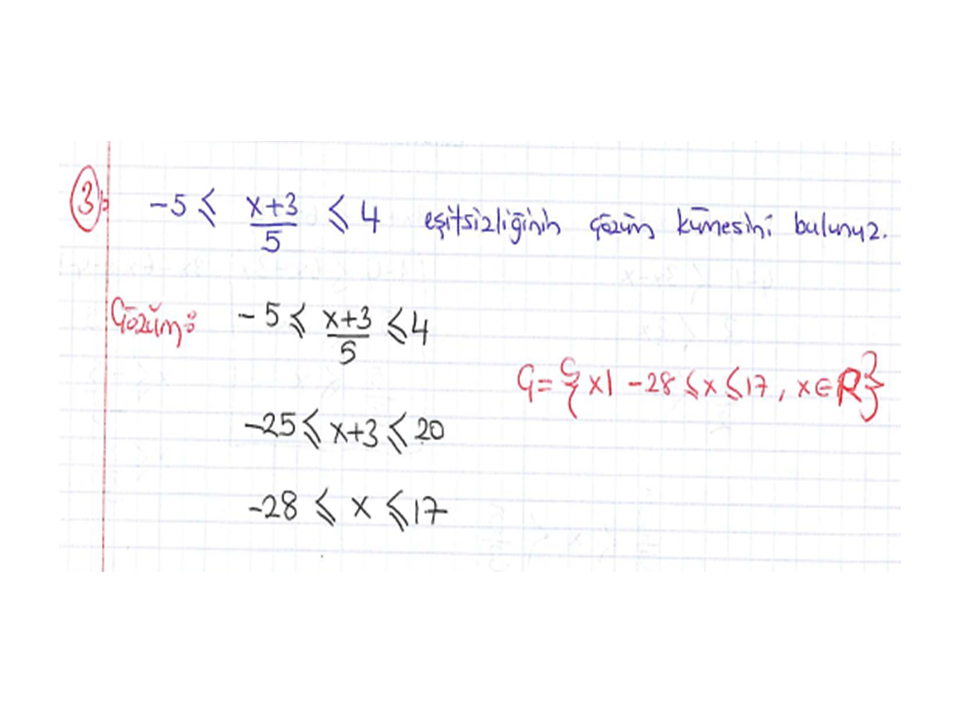 3) -5 ≤ (x+3)/5 ≤ 4 eşitsizliğinin çözüm kümesini bulunuz.
Çözüm: -5 ≤ (x+3)/5 ≤ 4
Ç = {x| -28 ≤ x ≤ 17, x ∈ R}
-25 ≤ x+3 ≤ 20
-28 ≤ x ≤ 17